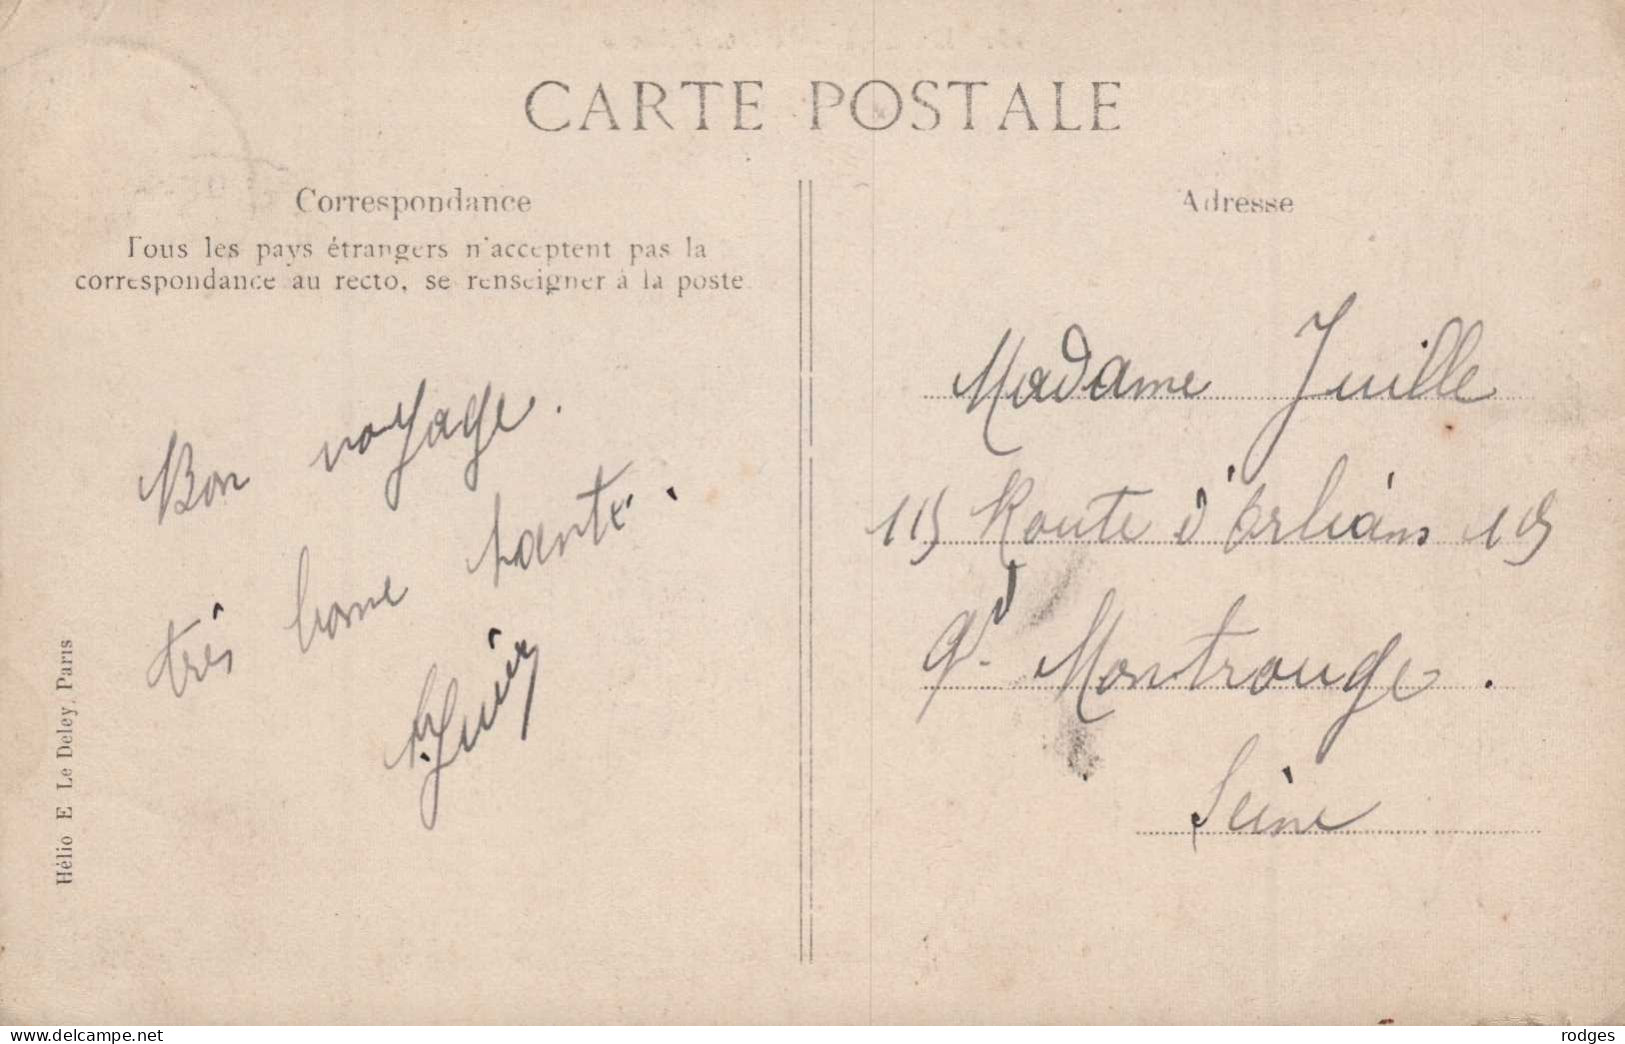 CARTE POSTALE
Correspondance
Tous les pays étrangers n'acceptent pas la
correspondance au recto, se renseigner à la poste.
Bon voyage.
très bonne santé.
Adresse
Madame Juille
115 Route d'Orléans 115
Gd Montrouge.
Seine
Hélio E. Le Deley, Paris
www.delcampe.net
rodges